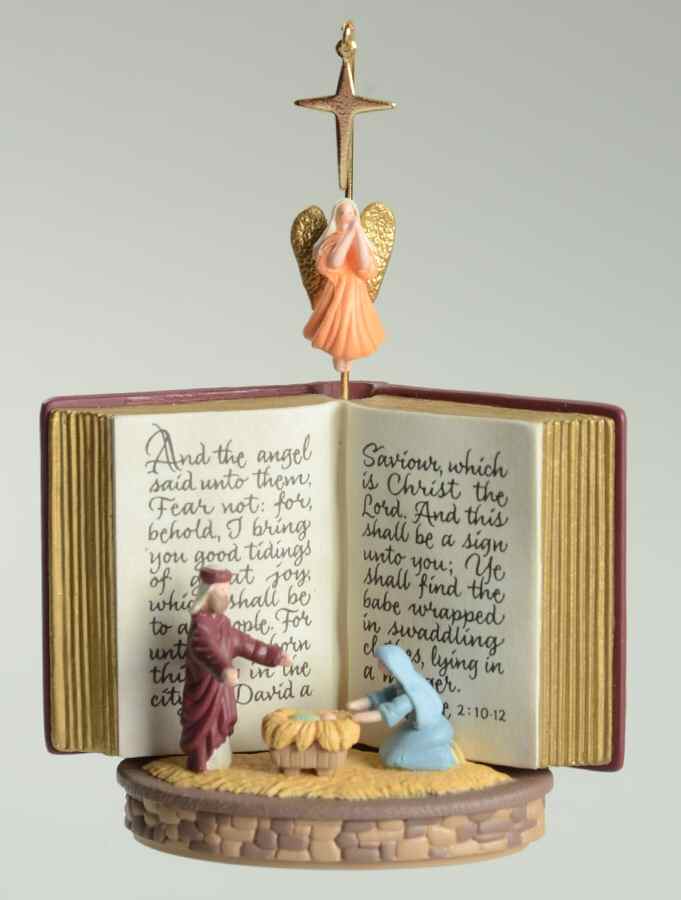 And the angel
said unto them,
Fear not: for,
behold, I bring
you good tidings
of great joy,
which shall be
to all people. For
unto born
this in the
city David a
Saviour, which
is Christ the
Lord. And this
shall be a sign
unto you; Ye
shall find the
babe wrapped
in swaddling
clothes, lying in
a manger.
2:10-12